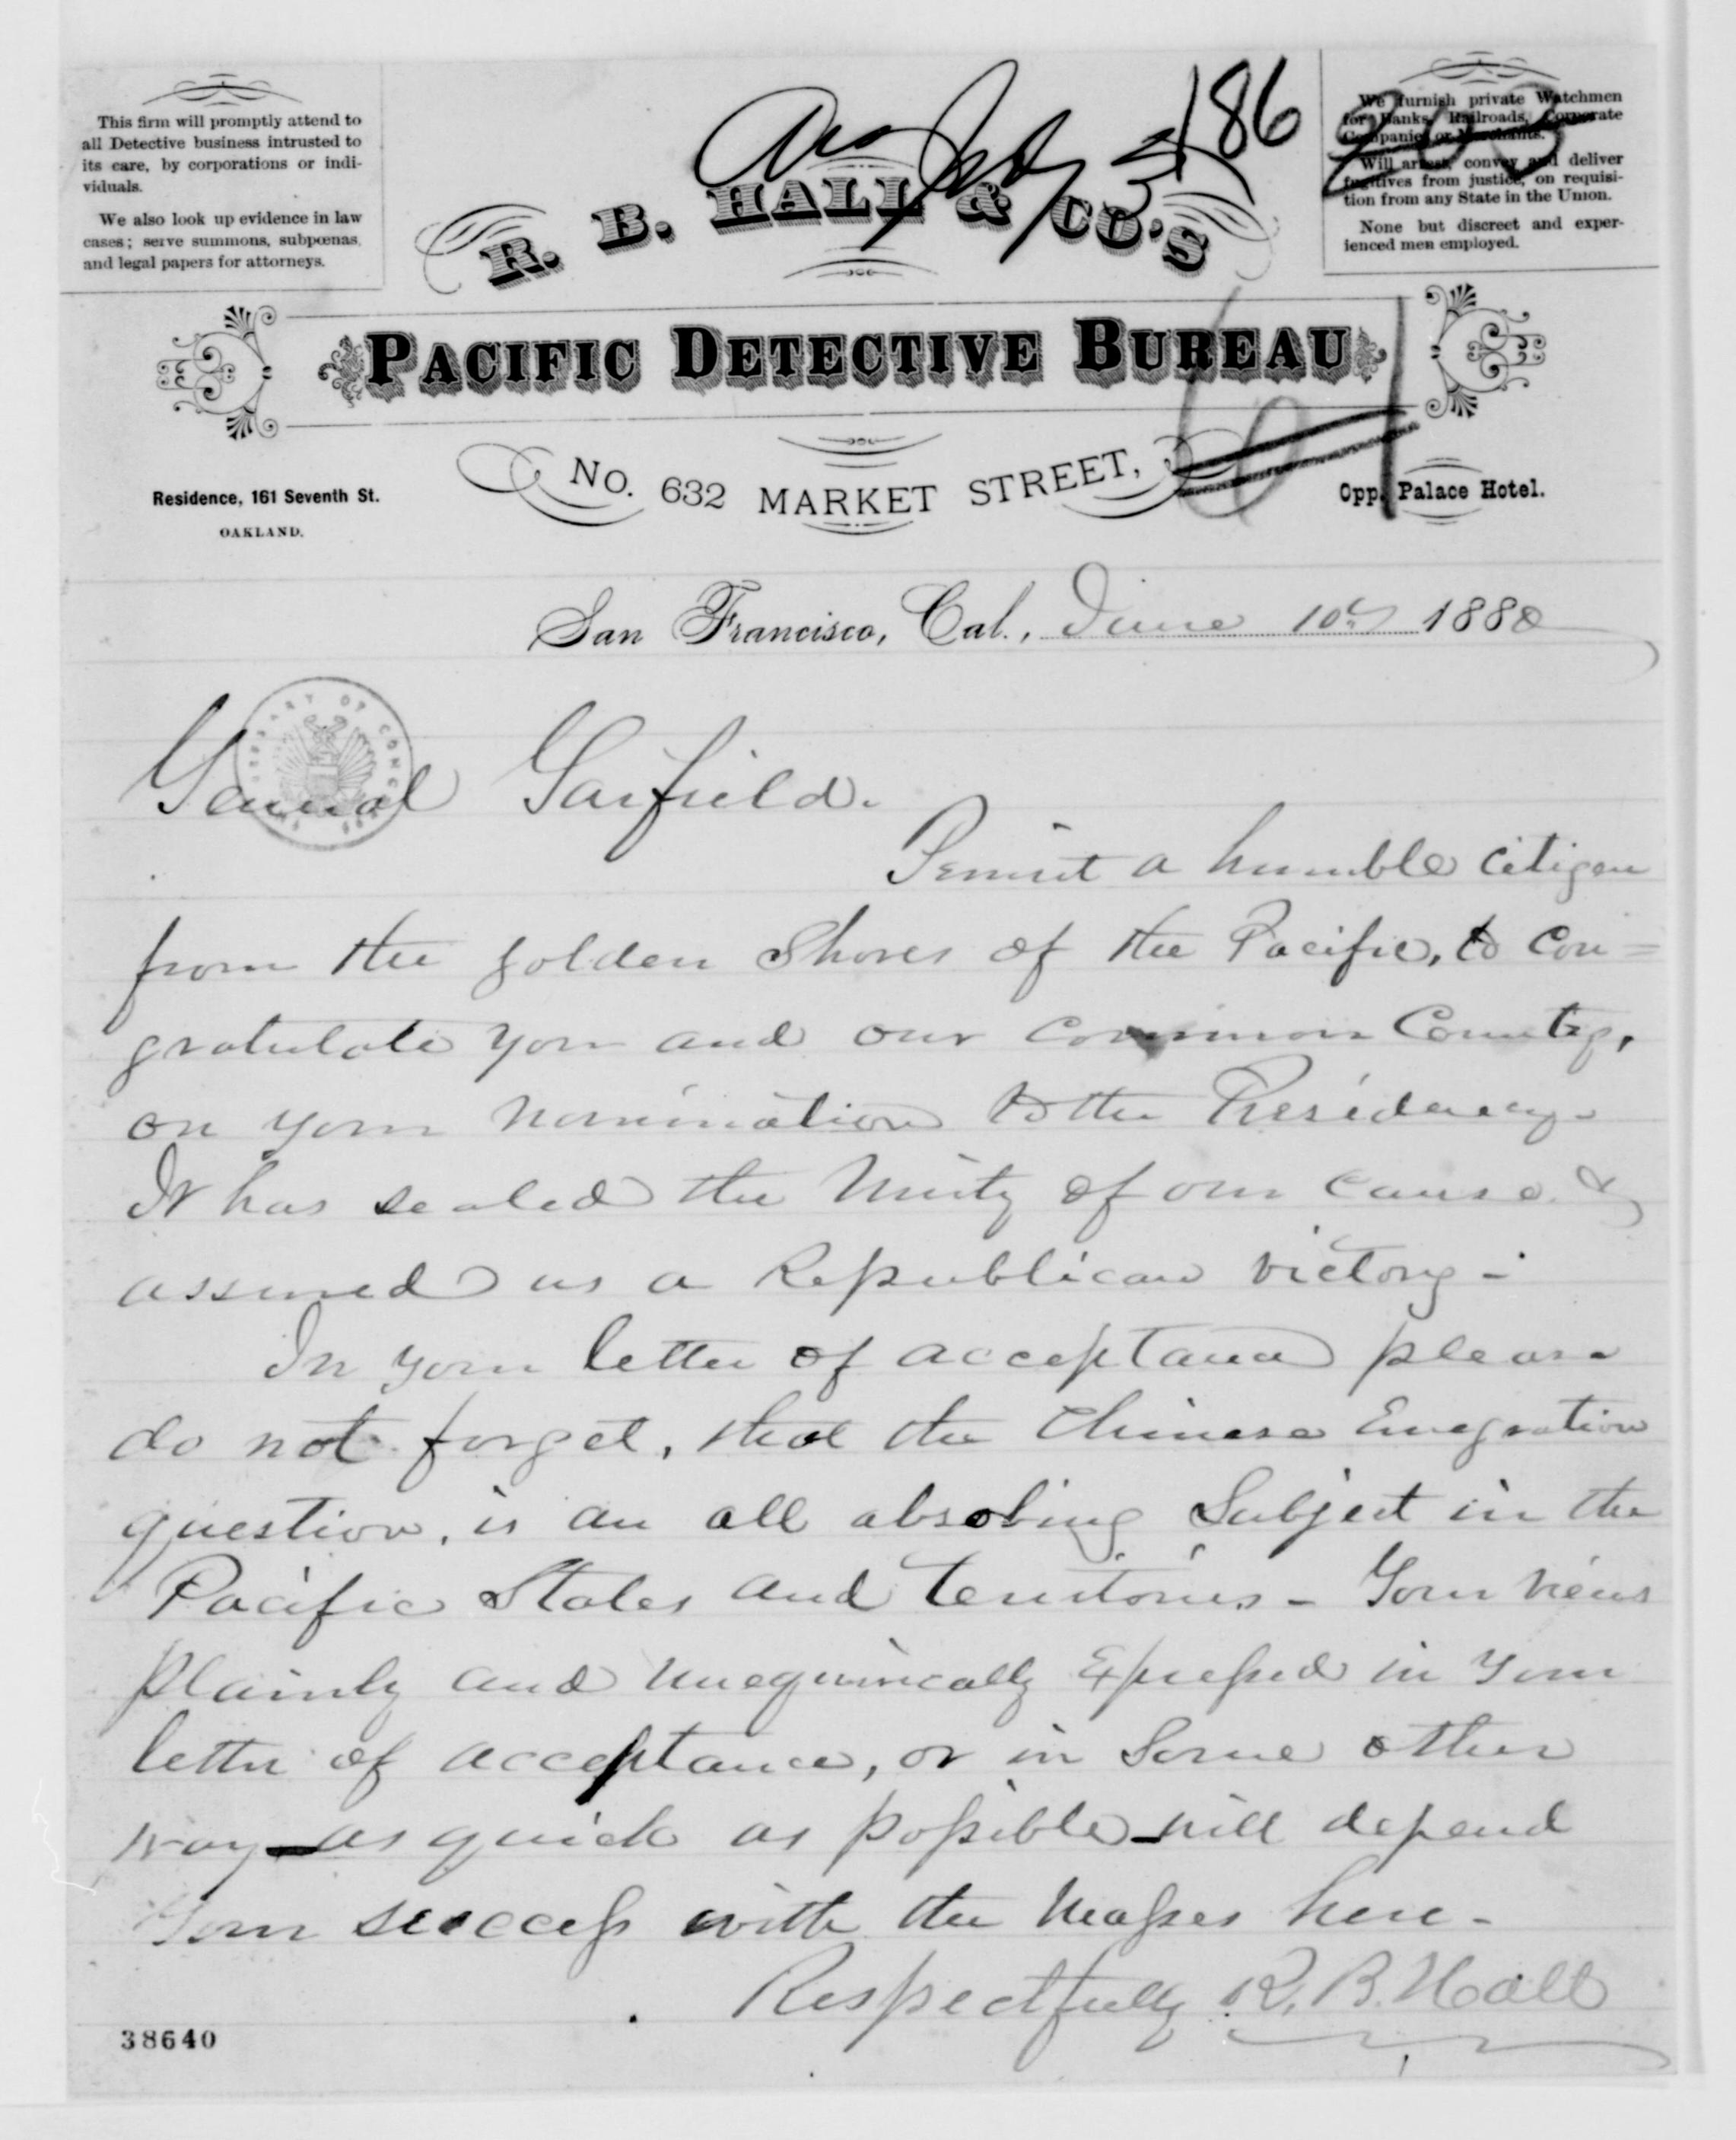 This firm will promptly attend to
all Detective business intrusted to
its care, by corporations or indi-
viduals.
We also look up evidence in law
cases; serve summons, subpœnas,
and legal papers for attorneys.
Ans July 3
186
We furnish private Watchmen
for Banks, Railroads, Corporate
Companies or Merchants.
Will arrest, convey and deliver
fugitives from justice, on requisi-
tion from any State in the Union.
None but discreet and exper-
ienced men employed.
R. B. HALL & CO'S
PACIFIC DETECTIVE BUREAU
NO. 632 MARKET STREET,
Residence, 161 Seventh St.
OAKLAND.
Opp. Palace Hotel.
61
San Francisco, Cal., June 10th 1880
LIBRARY OF CONGRESS
General Garfield.
Permit a humble citizen
from the golden Shores of the Pacific, to con=
gratulate you and our common Country,
on your nomination to the Presidency-
It has sealed the Unity of our cause &
assured us a Republican victory-
In your letter of acceptance please
do not forget, that the Chinese Emegration
question, is an all absobing Subject in the
Pacific States and Territories- Your views
plainly and unequivically Expressed in your
letter of acceptance, or in Some other
way—as quick as possible—will depend
Your success with the Masses here-
Respectfully R. B. Hall
38640